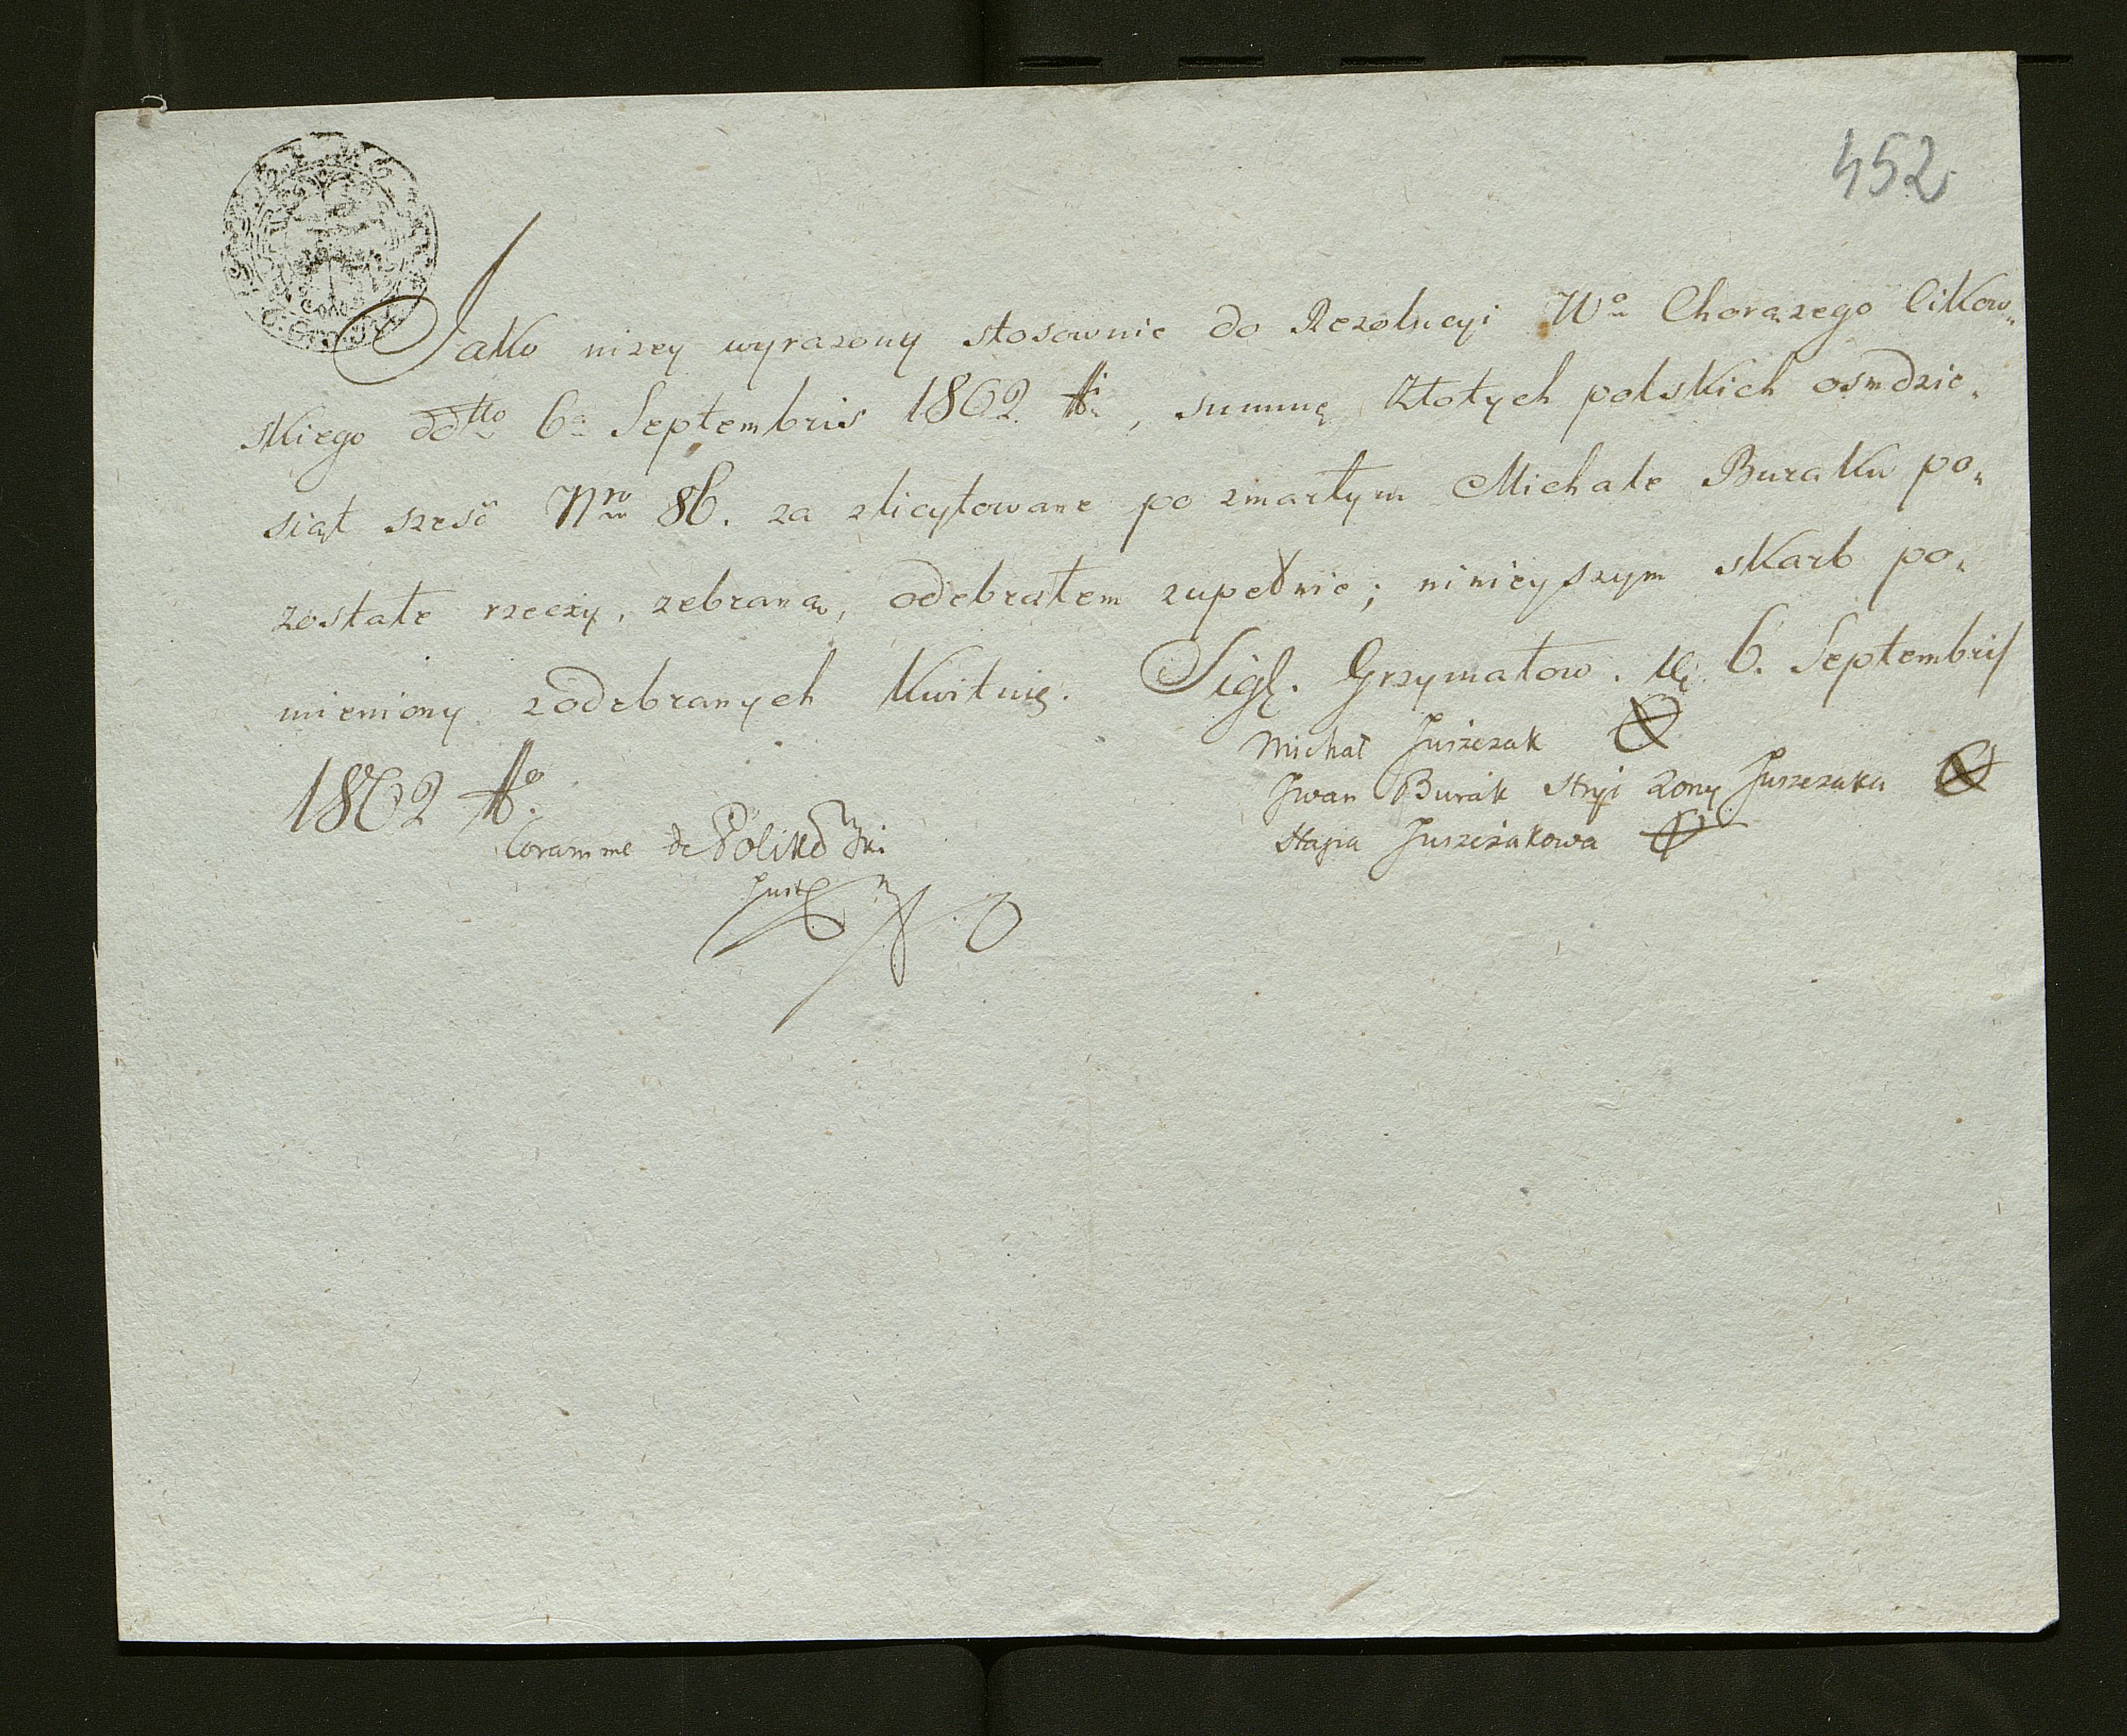 452
Jako nizey wyrazony stosownie do Rezolucyi Wo Chorązego Cikow„
skiego ddtto 6a Septembris 1802 Ai, summę Złotych polskich osmdzie„
siąt sześć Nro 86. za zlicytowane po zmarłym Michale Buraku po„
zostałe rzeczy, zebraną, odebrałem zupełnie; ninieyszym skarb po„
mieniony zodebranych kwituię. Sigl. Grzymałow. 6. Septembris
1802 Ao.
Michał Juszczak
Iwan Burak stryi zony Juszczaka
Coram me de
Stasia Juszczakowa
Just